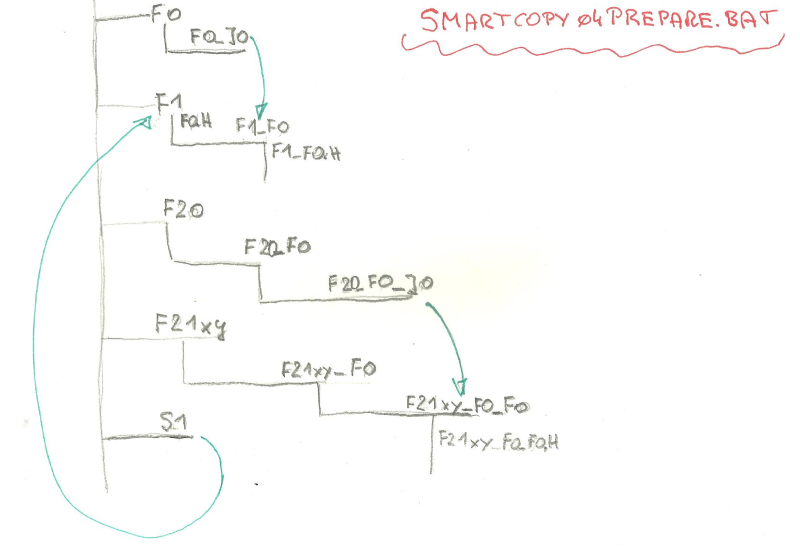 SMARTCOPY 04 PREPARE.BAT
F0
F0_J0
F1
F0.H
F1_F0
F1_F0.H
F20
F20_F0
F20_F0_J0
F21xy
F21xy_F0
F21xy_F0_F0
F21xy_F0_F0.H
S1